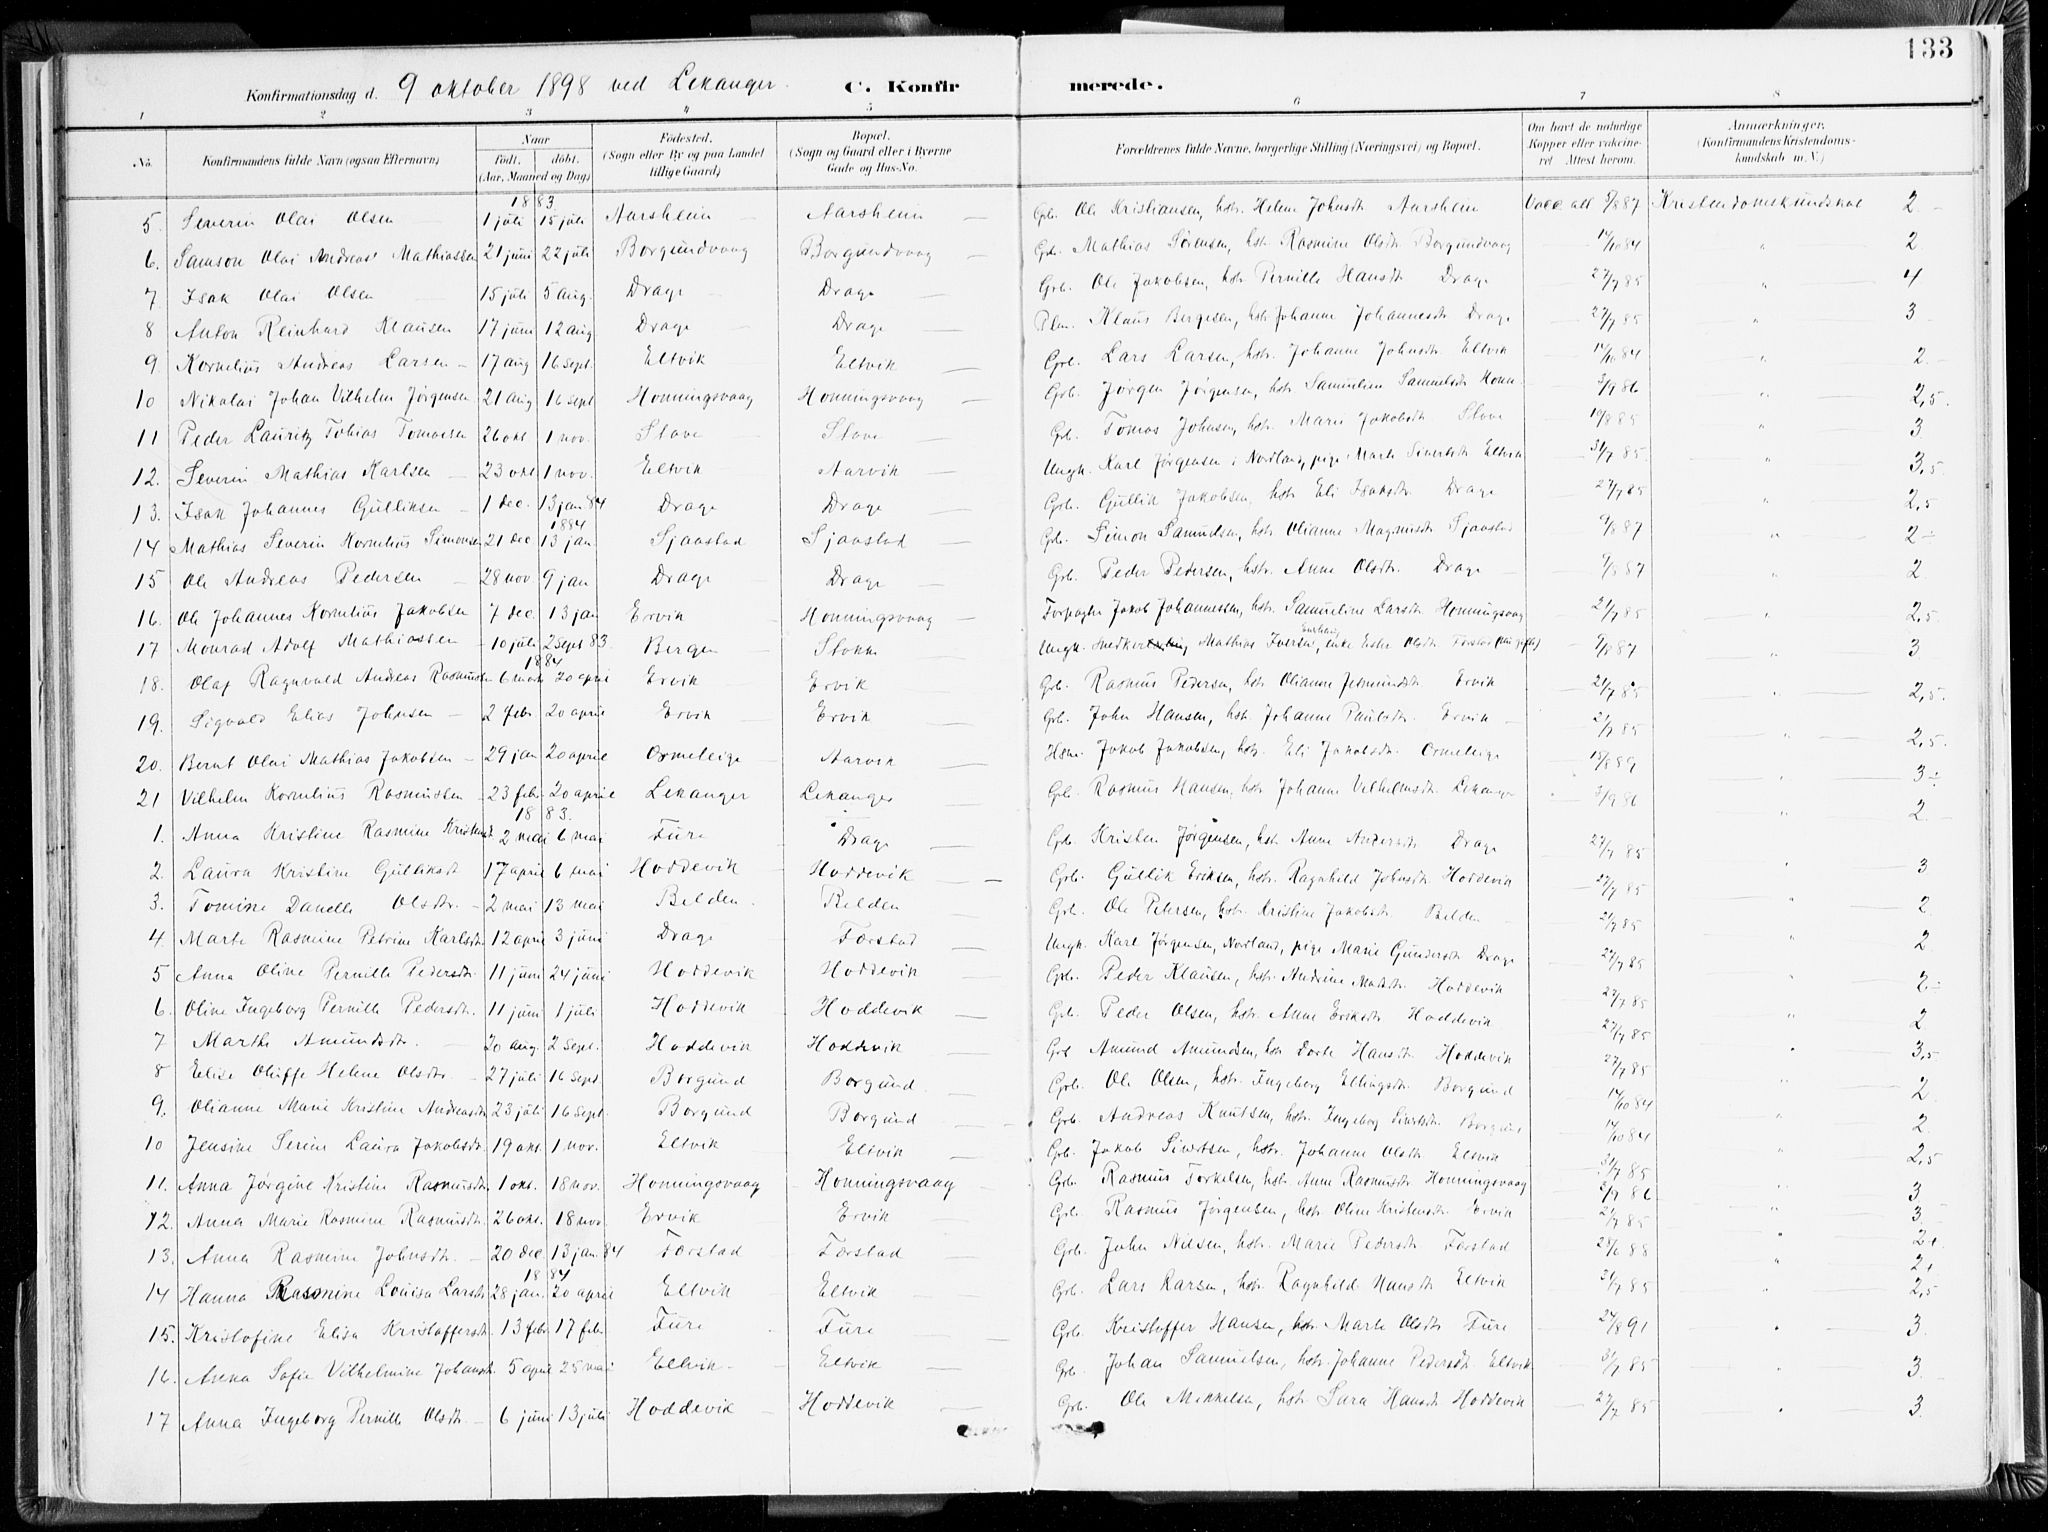 133
Konfirmationsdag d. 9 oktober 1898 ved Lekanger. C. Konfirmerede.
1 2 3 4 5 6 7 8
No. Konfirmandens fulde Navn (ogsaa Efternavn) Naar født. døbt. (Aar, Maaned og Dag) Fødested. (Sogn eller By og paa Landet tillige Gaard) Bopæl. (Sogn og Gaard eller i Byerne Gade og Hus-No. Forældrenes fulde Navne, borgerlige Stilling (Næringsvei) og Bopæl. Om havt de naturlige Kopper eller vakcineret Attest herom. Anmærkninger. (Konfirmandens Kristendomskundskab m. V.)
1883
5. Severin Olai Olsen 1 juli 15 juli Aarsheim Aarsheim Grb. Ole Kristiansen, hstr. Helene Johnsdtr Aarsheim Vacc att 9/8 87 Kristendomskundskab 2
6. Samson Olai Andreas Mathiassen 21 juni 22 juli Borgundvaag Borgundvaag Grb. Mathias Sørensen, hstr. Rasmine Olsdtr Borgundvaag 14/10 84 " 2
7. Isak Olai Olsen 15 juli 5 aug. Drage Drage Grb. Ole Jakobsen, hstr Pernille Hansdtr Drage 27/7 85 " 4
8 Anton Reinhard Klausen 17 juni 12 aug Drage Drage Plm. Klaus Børgesen, hstr Johanne Johannesdtr Drage 27/7 85 " 3
9. Kornelius Andreas Larsen 17 aug 16 sept. Eltvik Eltvik Grb. Lars Larsen, hstr. Johanne Johnsdtr. Eltvik 14/10 84 " 2
10 Nikolai Johan Vilhelm Jørgensen 21 aug 16 sept Honningsvaag Honningsvaag Grb. Jørgen Jørgensen, hstr Samueline Samuelsdtr Honn 3/9 86 " 2,5.
11 Peder Lauritz Tobias Tomassen 26 okt 1 nov. Stave Stave Grb. Tomas Johnsen, hstr. Marie Jakobsdtr. Stave 10/8 85 " 3
12. Severin Mathias Karlsen 23 okt 1 nov. Eltvik Aarvik Ungk. Karl Jørgensen i Nordland, pige Marte Sivertsdtr Eltvik 31/7 85. " 3,5
13. Isak Johannes Gulliksen 1 dec. 13 jan 84 Drage Drage Grb. Gullik Jakobsen, hstr Eli Isaksdtr. Drage 27/7 85 " 2,5
1884
14 Mathias Severin Kornelius Simonsen 21 dec 13 jan. Sjaastad Sjaastad Grb. Simon Samuelsen, hstr. Olianne Magnusdtr Sjaastad 9/8 87 " 2÷
15 Ole Andreas Pedersen 28 nov 9 jan Drage Drage Grb. Peder Pedersen, hstr. Anne Olsdtr. Drage 9/8 87 " 2
16. Ole Johannes Kornelius Jakobsen 7 dec. 13 jan Ervik Honningsvaag Forpagter Jakob Johannessen, hstr. Samueline Larsdtr Honningsvaag 21/7 85 " 2,5
17 Monrad Adolf Mathiassen 10 juli 2 sept 83. Bergen Stokke Ungk. snedker Mathias Iversen, enke Ester Olsdtr Førstad 9/8 87 " 3
1884
18. Olaf Ragnvald Andreas Rasmussen 6 mars 20 april Ervik Ervik Grb. Rasmus Pedersen, hstr Olianne Jetmundsdtr Ervik 21/7 85 " 2,5.
19. Sigvald Elias Johnsen 2 febr 20 april Ervik Ervik Grb. John Hansen, hstr. Johanne Paulsdtr. Ervik 21/7 85 " 2,5.
20. Bernt Olai Mathias Jakobsen 29 jan 20 april Ormeleige Aarvik Hsm. Jakob Jakobsen, hstr. Eli Jakobsdtr Ormeleige 15/8 89 " 3÷
21 Vilhelm Kornelius Rasmussen 23 febr. 20 april Lekanger Lekanger Grb. Rasmus Hansen, hstr Johanne Vilhelmsdtr. Lekanger 3/9 86 " 2
1883.
1. Anna Kristine Rasmine Kristensd. 2 mai 6 mai Fure Drage Grb. Kristen Jørgensen, hstr. Anne Andersdtr Drage 27/7 85 " 3
2. Laura Kristine Gulliksdtr 17 april 6 mai Hoddevik Hoddevik Grb. Gullik Eriksen, hstr. Ragnhild Johnsdtr Hoddevik 27/7 85 " 2
3. Tomine Danelle Olsdtr. 2 mai 13 mai Belden. Belden Grb. Ole Petersen, hstr. Kristine Jakobsdtr Belden 21/7 85 " 2
4. Marte Rasmine Petrine Karlsdtr 12 april 3 juni Drage Førstad Ungk. Karl Jørgensen, Nordland, pige Marie Gundersdtr Drage 27/7 85 " 2÷
5 Anna Oline Pernille Pedersdtr. 11 juni 24 juni Hoddevik Hoddevik Grb. Peder Klausen, hstr. Andrine Matsdtr. Hoddevik 27/7 85 " 2
6. Oline Ingeborg Pernille Pedersdtr. 11 juni 1 juli Hoddevik Hoddevik Grb. Peder Olsen, hstr. Anne Eriksdtr Hoddevik 27/7 85 " 3,5
7 Marthe Amundsdtr. 20 aug. 2 sept. Hoddevik Hoddevik Grb Amund Amundsen, hstr Dorte Hansdtr Hoddevik 27/7 85 " 2
8 Elise Oluffe Helene Olsdtr. 27 juli 16 sept. Borgund Borgund. Grb. Ole Olsen, hstr. Ingeborg Ellingsdtr. Borgund 14/10 84 " 2.
9. Olianne Marie Kristine Andreasdtr 23 juli 16 sept. Borgund Borgund Grb. Andreas Knutsen, hstr. Ingeborg Sivertsdtr. Borgund 14/10 84 " 2,5
10 Jensine Serine Laura Jakobsdtr. 19 okt. 1 nov. Eltvik Eltvik Grb. Jakob Sivertsen, hstr. Johanne Olsdtr Eltvik 31/7 85 " 3
11. Anna Jørgine Kristine Rasmusdtr. 1 okt. 18 nov. Honningsvaag Honningsvaag Grb. Rasmus Torkelsen, hstr. Anne Rasmusdtr Honningsvaag 3/9 86 " 3
12. Anna Marie Rasmine Rasmusdtr. 26 okt. 18 nov. Ervik Ervik Grb. Rasmus Jørgensen, hstr Oline Kristensdtr Ervik 21/7 85 " 2+
13. Anna Rasmine Johnsdtr. 20 dec. 13 jan. 84 Førstad Førstad Grb. John Nilsen, hstr. Marie Pedersdtr Førstad 28/6 88 " 2+
1884
14 Hanna Rasmine Louisa Larsdtr 28 jan. 20 april Eltvik Eltvik Grb. Lars Larsen, hstr. Ragnhild Hansdtr Eltvik 31/7 85 " 2,5
15. Kristofine Elisa Kristoffersdtr. 13 febr. 17 febr. Fure Fure Grb. Kristoffer Hansen, hstr. Marte Olsdtr Fure 27/8 91 " 3.
16. Anna Sofie Vilhelmine Johansdtr 5 april 25 mai Eltvik Eltvik Grb. Johan Samuelsen, hstr. Johanne Pedersdtr. Eltvik 31/7 85 " 3.
17 Anna Ingeborg Pernille Olsdtr. 6 juni 13 juli Hoddevik Hoddevik Grb. Ole Mikkelsen, hstr. Sara Hansdtr Hoddevik 27/7 85 " 3.